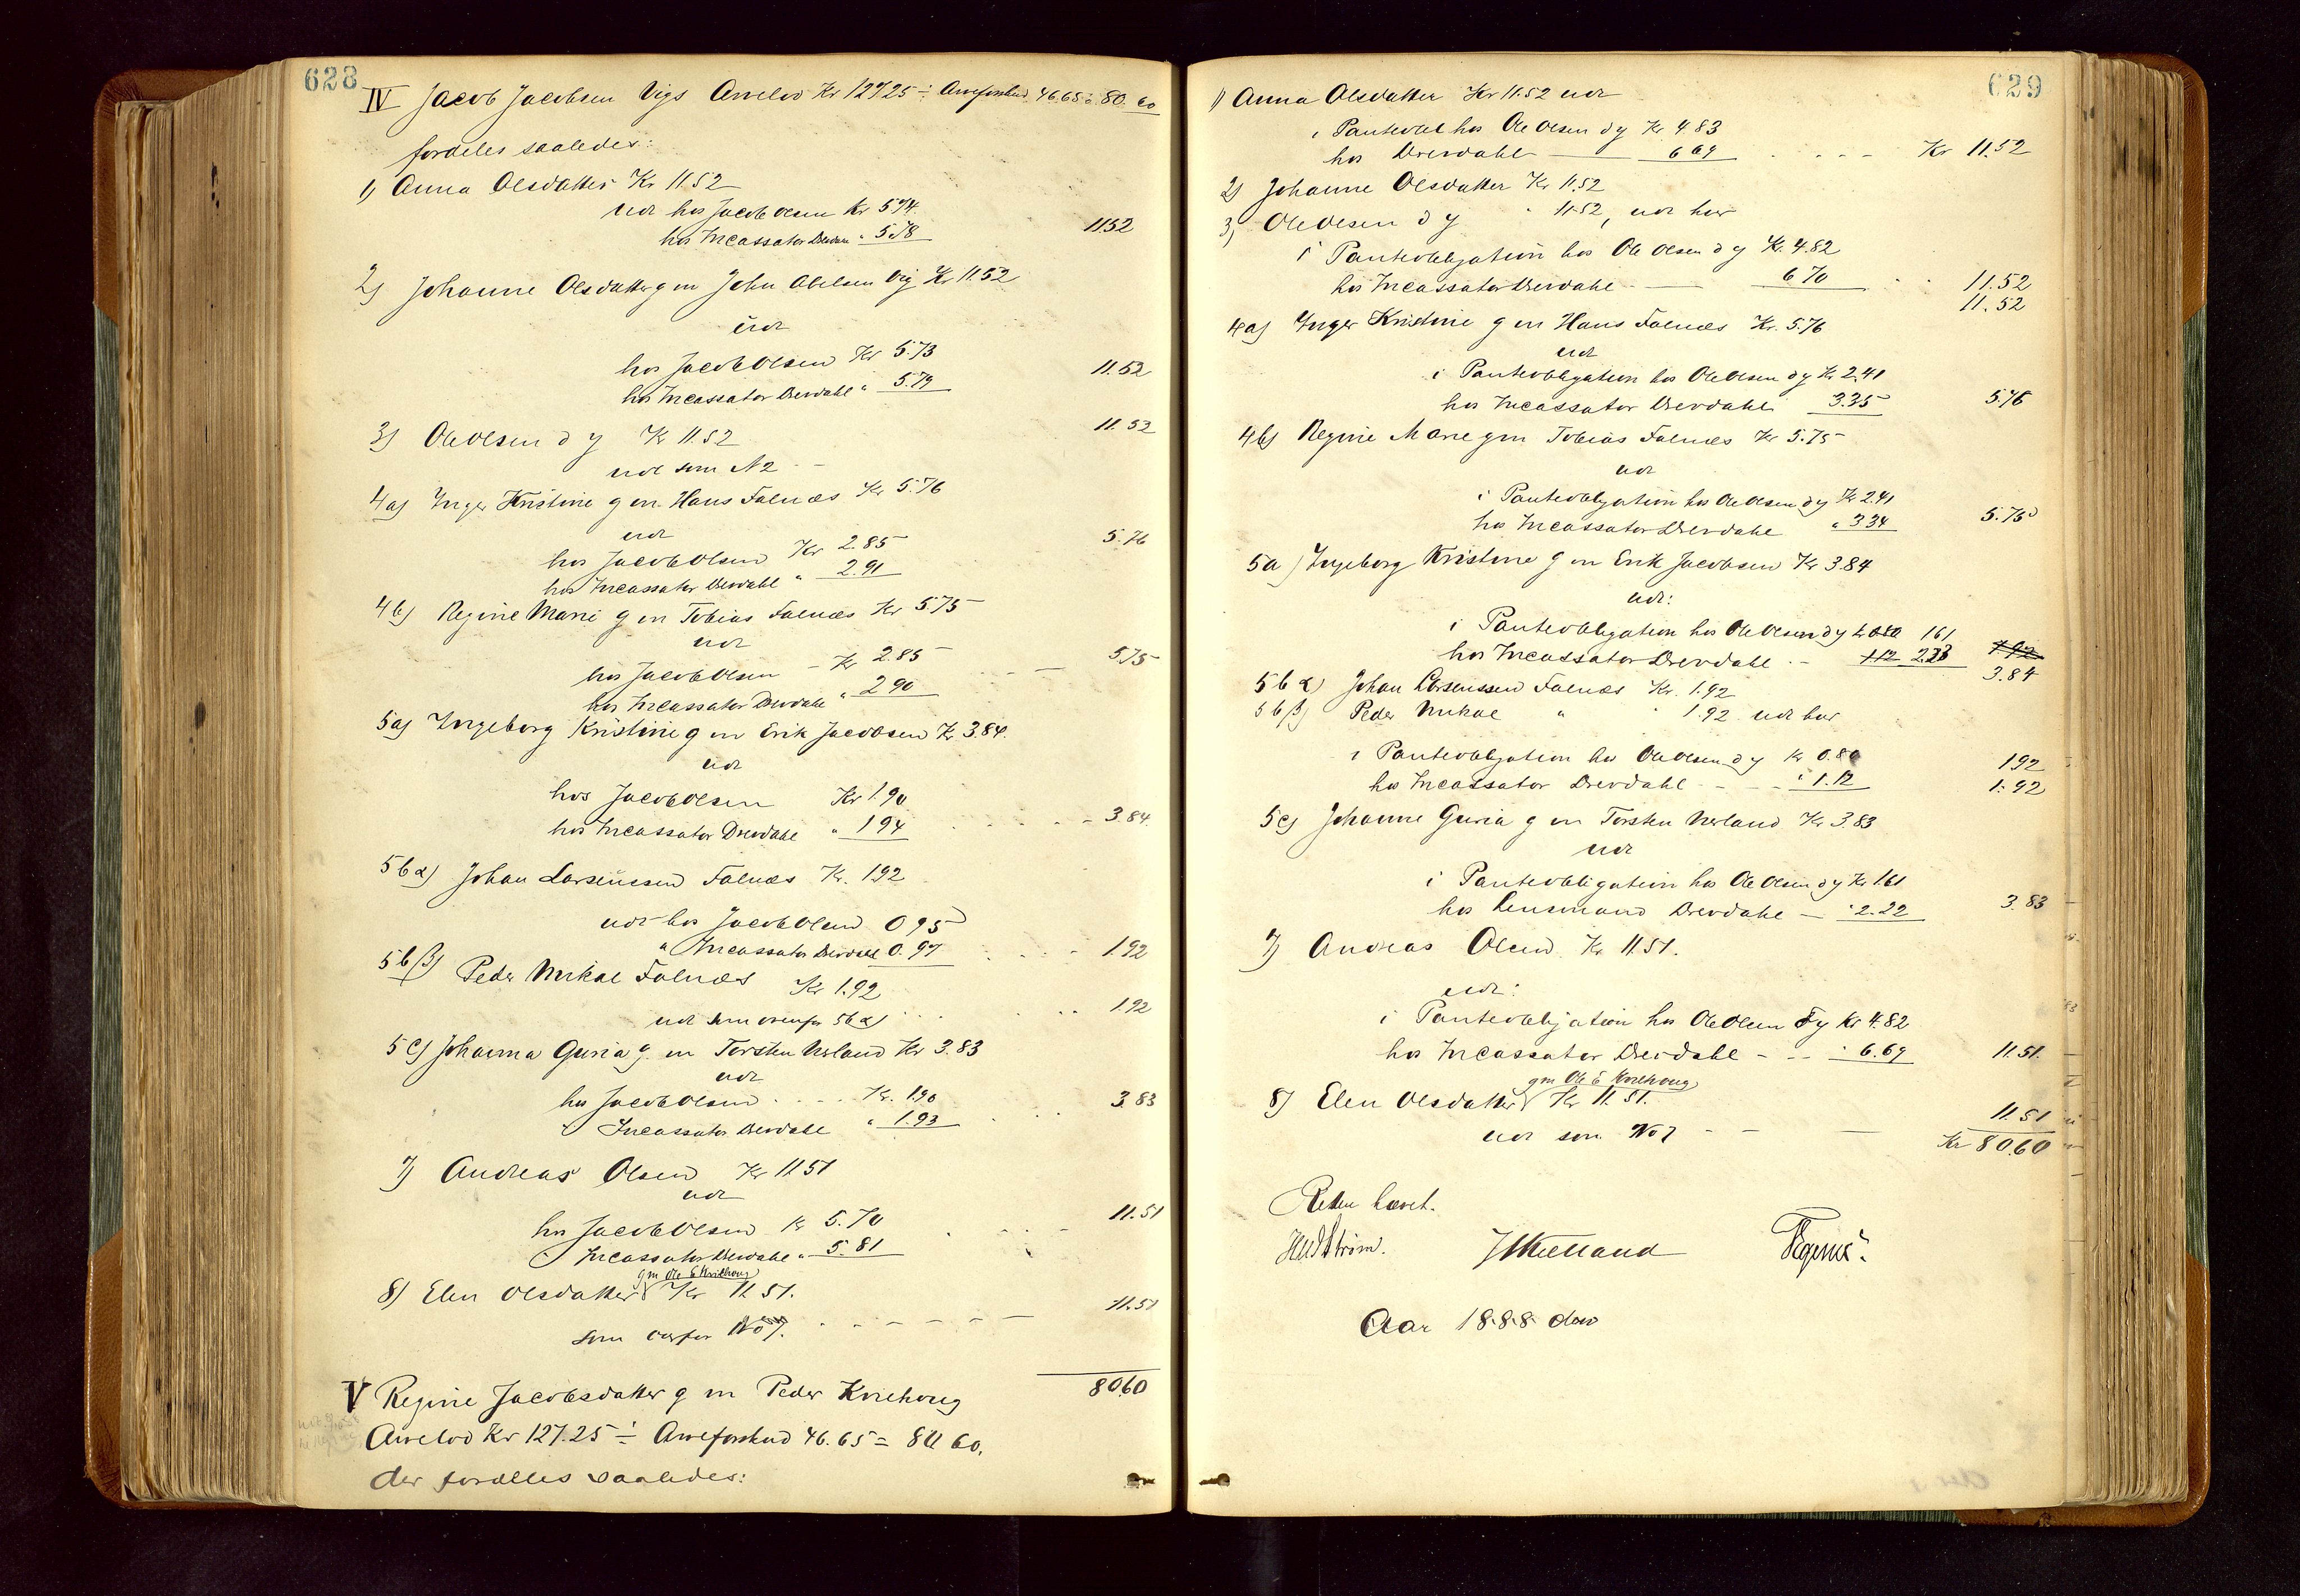 628
IV Jacob Jacobsen Vigs Arvelod Kr 127.25 ÷ Arveforskud 46.65 = 80.60
fordeles saaledes:
1) Anna Olsdatter Kr 11.52
Udl hos Jacob Olsen Kr 5.74
hos Incassator Drevdahl " 5.78 11.52
2) Johanne Olsdatter g m John Abelsen Vig Kr 11.52
Udl
hos Jacob Olsen Kr 5.73
hos Incassator Drevdahl " 5.79 11.52
3) Ole Olsen d y Kr 11.52 11.52
udl som N 2
4a) Inger Kristine g m Hans Falnæs Kr 5.76
udl
hos Jacob Olsen Kr 2.85 5.76
hos Incassator Drevdahl " 2.91
4b) Regine Marie g m Tobias Falnæs Kr 5.75
udl
hos Jacob Olsen - Kr 2.85 5.75
hos Incassator Drevdahl " 2.90
5a) Ingeborg Kristine g m Erik Jacobsen Kr 3.84.
udl
hos Jacob Olsen Kr 1.90
hos Incassator Drevdahl " 1.94 3.84
5b α) Johan Larsenssen Falnæs Kr. 1.92
udl hos Jacob Olsen 0.95
" Incassator Drevdahl 0.97 1.92
5b β) Peder Mikal Falnæs Kr 1.92
udl som ovenfor 5b α) 1.92
5c) Johanna Guria g. m Torsten Nerland Kr 3.83
udl
hos Jacob Olsen Kr. 1.90 3.83
Incassator Drevdahl " 1.93
7) Andreas Olsen Kr 11.51
udl
hos Jacob Olsen Kr 5.70 11.51
Incassator Drevdahl " 5.81
gm Ole E Knehoug
8) Elen Olsdatter Kr 11.51.
som ovfor No 7. 11.51
80.60
V Regine Jacobsdatter g m Peder Knehoug
Arvelod Kr 127.25 ÷ Arveforskud 46.65 = 80.60.
der fordeles saaledes:
629
1) Anna Olsdatter Kr 11.52 udl
i Panteobl hos Ole Olsen d y Kr 4.83
hos Drevdahl 6.69 Kr 11.52
2) Johanne Olsdatter Kr 11.52
3) Ole Olsen d y " 11.52, udl hver
i Panteobligation hos Ole Olsen d y Kr. 4.82
hos Incassator Drevdahl 6.70 11.52
11.52
4a) Inger Kristine g m Hans Falnæs Kr. 5.76
udl
i Panteobligation hos Ole Olsen d y Kr 2.41
hos Incassator Drevdahl 3.35 5.76
4b) Regine Marie g m Tobias Falnæs Kr 5.75
udl
i Panteobligation hos Ole Olsen d y Kr 2.41
hos Incassator Drevdahl " 3.34 5.75
5a) Ingeborg Kristine g m Erik Jacobsen Kr 3.84
udl:
i Panteobligation hos Ole Olsen d y 0.80 1.61
hos Incassator Drevdahl - 1.12 2.23 1.92
3.84
5b α) Johan Larsenssen Falnæs Kr. 1.92
5b β) Peder Mikal " " 1.92 udl hver
i Panteobligation hos Ole Olsen d y Kr 0.80 1.92
hos Incassator Drevdahl " 1.12 1.92
5c) Johanne Guria g m Torsten Nerland Kr 3.83
udl
i Panteobligation hos Ole Olsen d y Kr 1.61
hos Lensmand Drevdahl - " 2.22 3.83
7) Andreas Olsen Kr 11.51.
udl:
i Panteobligation hos Ole Olsen d y Kr 4.82
hos Incassator Drevdahl - " 6.69 11.51
gm Ole E Knehoug
8) Elen Olsdatter Kr 11.51.
udl som No 7 11.51
Kr 80.60
Retten hævet.
Aar 1888 den